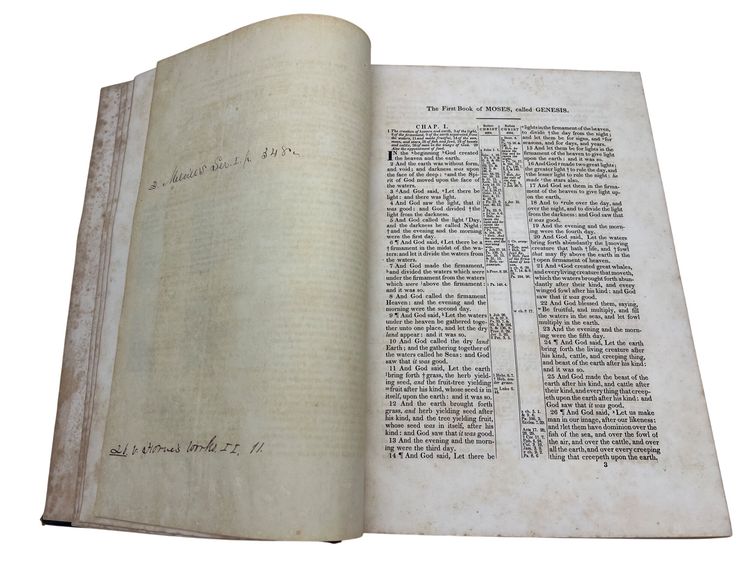 348.
Works II. 11.
The First Book of MOSES, called GENESIS.
CHAP. I.
IN the beginning God created
the heaven and the earth.
2 And the earth was without form,
and void; and darkness was upon
the face of the deep: and the Spi-
rit of God moved upon the face of
the waters.
3 And God said, Let there be
light: and there was light.
4 And God saw the light, that it
was good: and God divided † the
light from the darkness.
5 And God called the light Day,
and the darkness he called Night:
† and the evening and the morning
were the first day.
6 ¶ And God said, Let there be a
† firmament in the midst of the wa-
ters: and let it divide the waters from
the waters.
7 And God made the firmament,
and divided the waters which were
under the firmament from the waters
which were above the firmament:
and it was so.
8 And God called the firmament
Heaven: and the evening and the
morning were the second day.
9 ¶ And God said, Let the waters
under the heaven be gathered toge-
ther unto one place, and let the dry
land appear: and it was so.
10 And God called the dry land
Earth; and the gathering together of
the waters called he Seas: and God
saw that it was good.
11 And God said, Let the earth
bring forth † grass, the herb yield-
ing seed, and the fruit-tree yielding
fruit after his kind, whose seed is in
itself, upon the earth: and it was so.
12 And the earth brought forth
grass, and herb yielding seed after
his kind, and the tree yielding fruit,
whose seed was in itself, after his
kind: and God saw that it was good.
13 And the evening and the morn-
ing were the third day.
14 ¶ And God said, Let there be
Before
CHRIST
Before
CHRIST
lights in the firmament of the heaven,
to divide † the day from the night;
and let them be for signs, and for
seasons, and for days, and years.
15 And let them be for lights in the
firmament of the heaven to give light
upon the earth: and it was so.
16 And God made two great lights;
the greater light † to rule the day, and
the lesser light to rule the night: he
made the stars also.
17 And God set them in the firma-
ment of the heaven to give light up-
on the earth,
18 And to rule over the day, and
over the night, and to divide the light
from the darkness: and God saw that
it was good.
19 And the evening and the morn-
ing were the fourth day.
20 And God said, Let the waters
bring forth abundantly the moving
creature that hath † life, and † fowl
that may fly above the earth in the
† open firmament of heaven.
21 And God created great whales,
and every living creature that moveth,
which the waters brought forth abun-
dantly after their kind, and every
winged fowl after his kind: and God
saw that it was good.
22 And God blessed them, saying,
Be fruitful, and multiply, and fill
the waters in the seas, and let fowl
multiply in the earth.
23 And the evening and the morn-
ing were the fifth day.
24 ¶ And God said, Let the earth
bring forth the living creature after
his kind, cattle, and creeping thing,
and beast of the earth after his kind:
and it was so.
25 And God made the beast of the
earth after his kind, and cattle after
their kind, and every thing that creep-
eth upon the earth after his kind: and
God saw that it was good.
26 ¶ And God said, Let us make
man in our image, after our likeness:
and let them have dominion over the
fish of the sea, and over the fowl of
the air, and over the cattle, and over
all the earth, and over every creeping
thing that creepeth upon the earth.
3